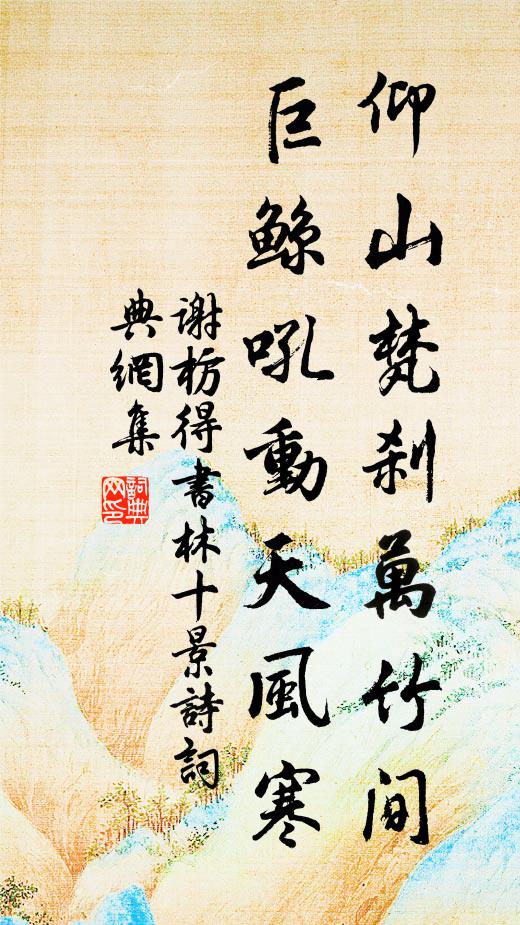 仰山梵刹萬竹間
巨鯨吼動天風寒
謝枋得書林十景詩詞
典網集
詞典網印